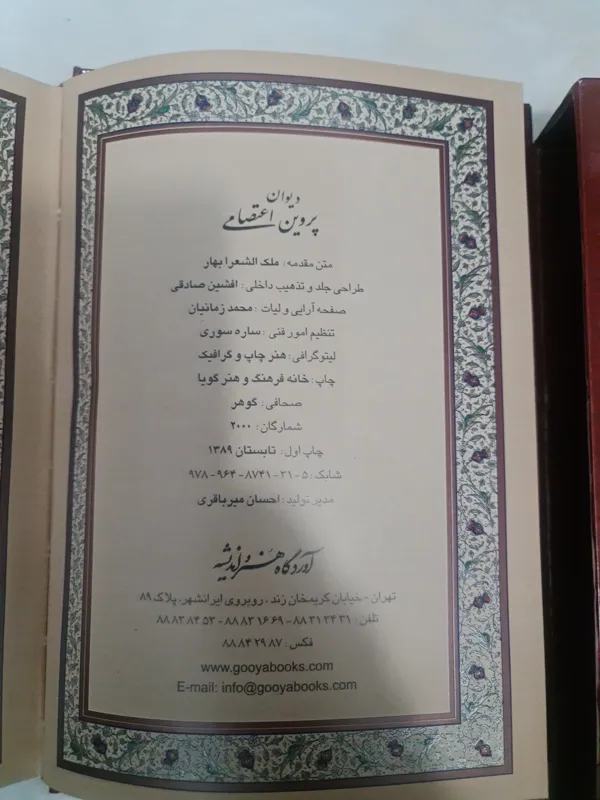 دیوان
پروین اعتصامی
متن مقدمه: ملک الشعرا بهار
طراحی جلد و تذهیب داخلی: افشین صادقی
صفحه آرایی و لیات: محمد زمانیان
تنظیم امور فنی: ساره سوری
لیتوگرافی: هنر چاپ و گرافیک
چاپ: خانه فرهنگ و هنر گویا
صحافی: گوهر
شمارگان: ۲۰۰۰
چاپ اول: تابستان ۱۳۸۹
شابک: ۵-۳۱-۸۷۴۱-۹۶۴-۹۷۸
مدیر تولید: احسان میرباقری
آوردگاه هنر و اندیشه
تهران - خیابان کریمخان زند، روبروی ایرانشهر، پلاک ۸۹
تلفن: ۸۸۳۱۳۴۳۱ - ۸۸۸۳۱۶۶۹ - ۸۸۸۳۸۴۵۳
فکس: ۸۸۸۴۲۹۸۷
www.gooyabooks.com
E-mail: info@gooyabooks.com